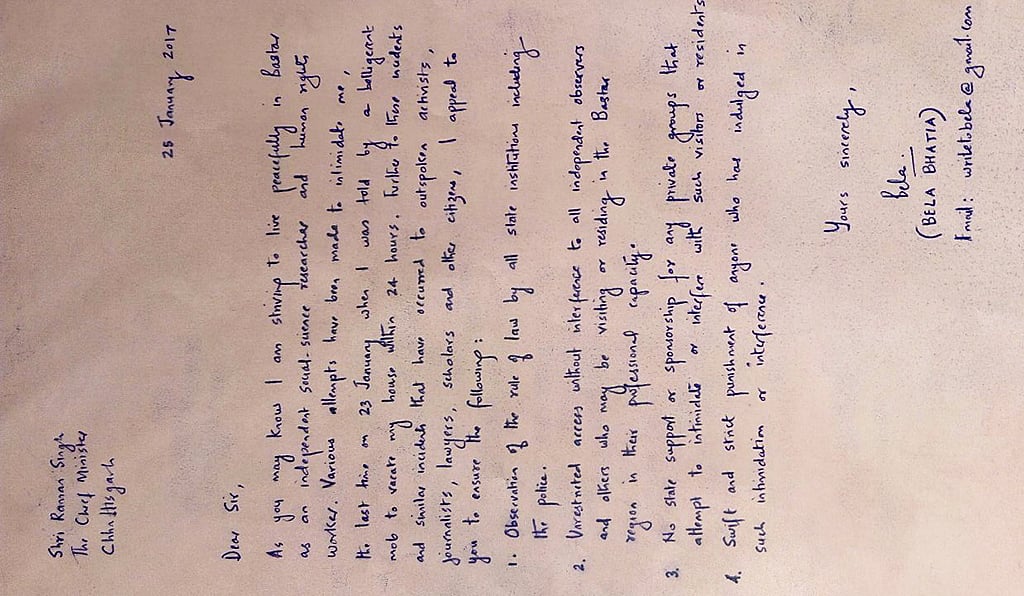 Shri Raman Singh
The Chief Minister
Chhattisgarh
25 January 2017
Dear Sir,
As you may know I am striving to live peacefully in Bastar
as an independent social-science researcher and human rights
worker. Various attempts have been made to intimidate me,
the last time on 23 January when I was told by a belligerent
mob to vacate my house within 24 hours. Further to these incidents
and similar incidents that have occurred to outspoken activists,
journalists, lawyers, scholars and other citizens, I appeal to
you to ensure the following:
1. Observation of the rule of law by all state institutions including
the police.
2. Unrestricted access without interference to all independent observers
and others who may be visiting or residing in the Bastar
region in their professional capacity.
3. No state support or sponsorship for any private groups that
attempt to intimidate or interfere with such visitors or residents
4. Swift and strict punishment of anyone who has indulged in
such intimidation or interference.
Yours sincerely,
Bela.
(BELA BHATIA)
Email: writetobela@gmail.com